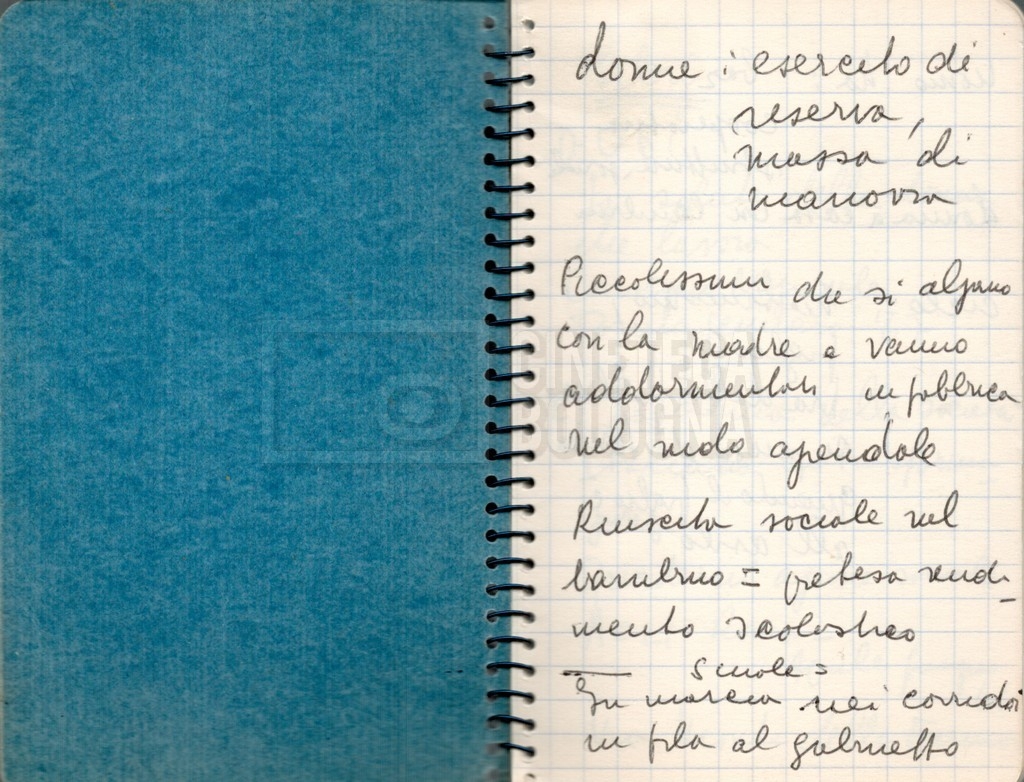 donne : esercito di
riserva,
massa di
manovra
Piccolissimi che si alzano
con la madre e vanno
addormentati in fabbrica
nel nido aziendale
Riuscita sociale nel
bambino = pretesa rendi-
mento scolastico
Scuole =
In marcia nei corridoi
in fila al gabinetto
CINETECA
BOLOGNA